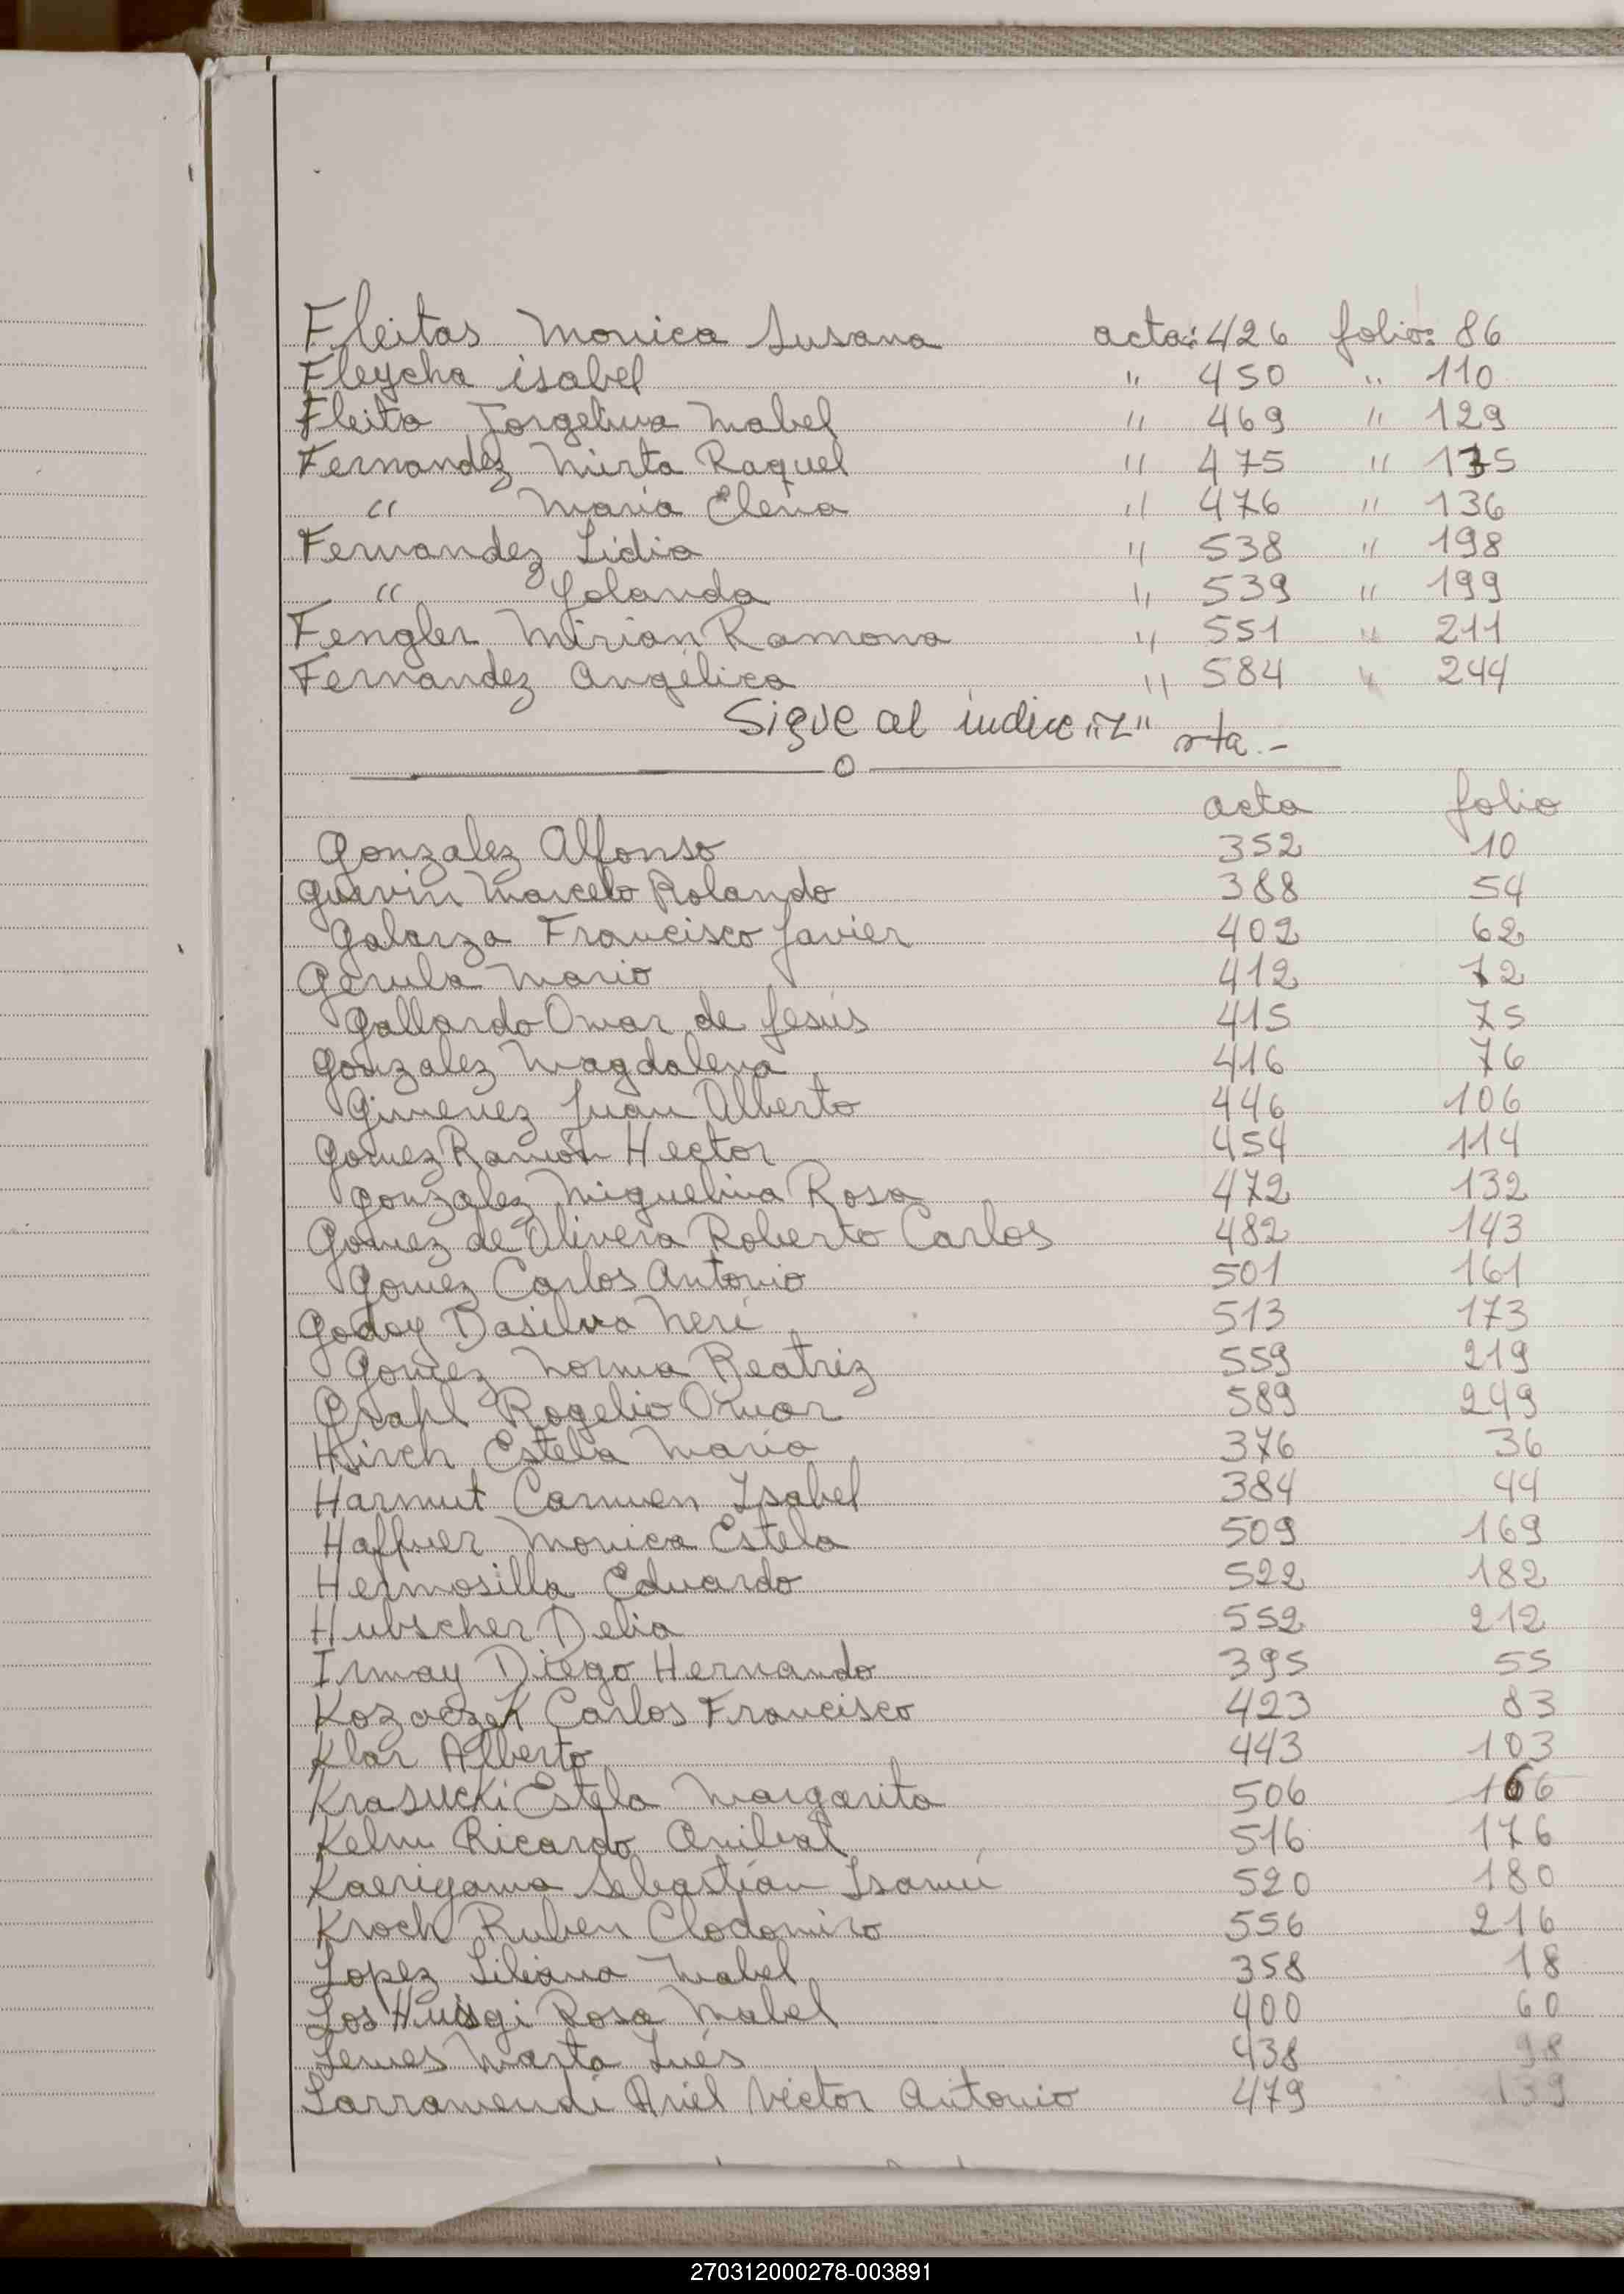 Fleitas Monica Susana acta: 426 folio: 86
Fleycha isabel " 450 " 110
Fleita Jorgelina Mabel " 469 " 129
Fernandez Mirta Raquel " 475 " 135
" Maria Elena " 476 " 136
Fernandez Lidia " 538 " 198
" Yolanda " 539 " 199
Fengler Mirian Ramona " 551 " 211
Fernandez Angélica " 584 " 244
Sigue al indice "Z" rta.-
O
acta folio
Gonzalez Alfonso 352 10
Guervin Marcelo Rolando 388 54
Galarza Francisco Javier 402 62
Gerula Mario 412 72
Gallardo Omar de Jesús 415 75
Gonzalez Magdalena 416 76
Gimenez Juan Alberto 446 106
Gomez Ramón Hector 454 114
Gonzalez Miguelina Rosa 472 132
Gomez de Olivera Roberto Carlos 482 143
Gomez Carlos Antonio 501 161
Godoy Dasilva Neri 513 173
Gomez Norma Beatriz 559 219
Grahl Rogelio Omar 589 249
Hirch Estela Maria 376 36
Harmut Carmen Isabel 384 44
Haffner Monica Estela 509 169
Hermosilla Eduardo 522 182
Hubscher Delia 552 212
Irmay Diego Hernando 395 55
Kozaczek Carlos Francisco 423 83
Klar Alberto 443 103
Krasucki Estela Margarita 506 166
Kelm Ricardo Anibal 516 176
Kaeriyama Sebastián Isamú 520 180
Kroch Ruben Clodomiro 556 216
Lopez Liliana Mabel 358 18
Los Huisgi Rosa Mabel 400 60
Lemes Marta Inés 438 98
Larramendi Ariel Victor Antonio 479 139
270312000278-003891